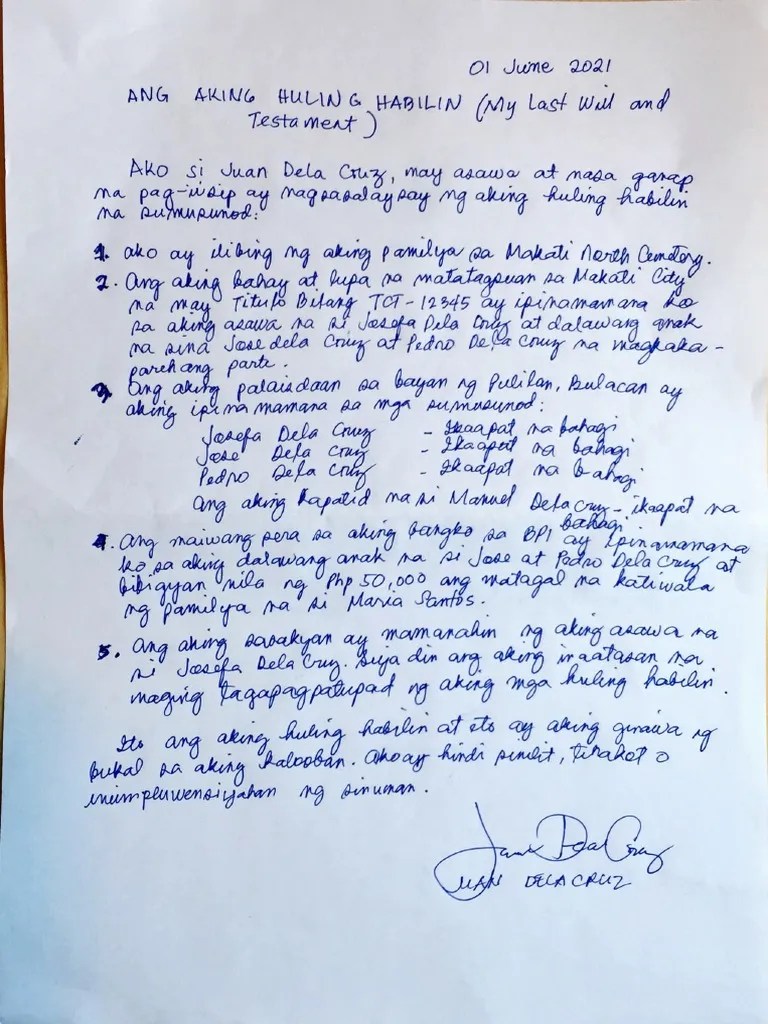 01 June 2021
ANG AKING HULING HABILIN (My Last Will and
Testament)
Ako si Juan Dela Cruz, may asawa at nasa ganap
na pag-iisip ay nagsasalaysay ng aking huling habilin
na sumusunod:
1. Ako ay ilibing ng aking pamilya sa Makati North Cemetery.
2. Ang aking bahay at lupa na matatagpuan sa Makati City
na may Titulo Bilang TCT-12345 ay ipinamamana ko
sa aking asawa na si Josefa Dela Cruz at dalawang anak
na sina Jose dela Cruz at Pedro Dela Cruz na magkaka-
parehang parte.
3. Ang aking palaisdaan sa bayan ng Pulilan, Bulacan ay
aking ipinamamana sa mga sumusunod:
Josefa Dela Cruz - Ikaapat na bahagi
Jose Dela Cruz - Ikaapat na bahagi
Pedro Dela Cruz - Ikaapat na bahagi
Ang aking kapatid na si Manuel Dela Cruz - ikaapat na
bahagi.
4. Ang maiwang pera sa aking bangko sa BPI ay ipinamamana
ko sa aking dalawang anak na si Jose at Pedro Dela Cruz at
bibigyan nila ng Php 50,000 ang matagal na katiwala
ng pamilya na si Maria Santos.
5. Ang aking sasakyan ay mamanahin ng aking asawa na
si Josefa Dela Cruz. Siya din ang aking inaatasan na
maging tagapagpatupad ng aking mga huling habilin.
Ito ang aking huling habilin at ito ay aking ginawa ng
bukal sa aking kalooban. Ako ay hindi pinilit, tinakot o
inimpluwensiyahan ng sinuman.
Juan Dela Cruz
JUAN DELA CRUZ